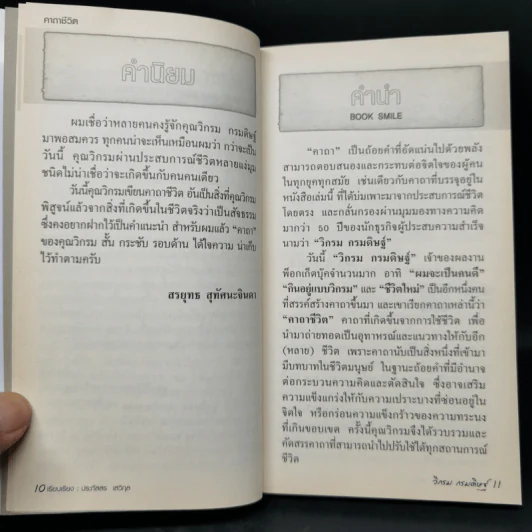 คาถาชีวิต
คำนิยม
ผมเชื่อว่าหลายคนคงรู้จักคุณวิกรม กรมดิษฐ์
มาพอสมควร ทุกคนน่าจะเห็นเหมือนผมว่า กว่าจะเป็น
วันนี้ คุณวิกรมผ่านประสบการณ์ชีวิตหลายแง่มุม
ชนิดไม่น่าเชื่อว่าจะเกิดขึ้นกับคนคนเดียว
วันนี้คุณวิกรมเขียนคาถาชีวิต อันเป็นสิ่งที่คุณวิกรม
พิสูจน์แล้วจากสิ่งที่เกิดขึ้นในชีวิตจริงว่าเป็นสัจธรรม
ซึ่งคงอยากฝากไว้เป็นคำแนะนำ สำหรับผมแล้ว “คาถา”
ของคุณวิกรม สั้น กระชับ รอบด้าน ได้ใจความ น่าเก็บ
ไว้ทำตามครับ
สรยุทธ สุทัศนะจินดา
10 เรียบเรียง : ประภัสสร เสวิกุล
คำนำ
BOOK SMILE
“คาถา” เป็นถ้อยคำที่อัดแน่นไปด้วยพลัง
สามารถตอบสนองและกระทบต่อจิตใจของผู้คน
ในทุกยุคทุกสมัย เช่นเดียวกับคาถาที่บรรจุอยู่ใน
หนังสือเล่มนี้ ที่ได้บ่มเพาะมาจากประสบการณ์ชีวิต
โดยตรง และกลั่นกรองผ่านมุมมองทางความคิด
มากว่า 50 ปีของนักธุรกิจผู้ประสบความสำเร็จ
นามว่า “วิกรม กรมดิษฐ์”
วันนี้ “วิกรม กรมดิษฐ์” เจ้าของผลงาน
พ็อกเก็ตบุ๊คจำนวนมาก อาทิ “ผมจะเป็นคนดี”
“กินอยู่แบบวิกรม” และ “ชีวิตใหม่” เป็นอีกหนึ่งคน
ที่สรรค์สร้างคาถาขึ้นมา และเขาเรียกคาถาเหล่านี้ว่า
“คาถาชีวิต” คาถาที่เกิดขึ้นจากการใช้ชีวิต เพื่อ
นำมาถ่ายทอดเป็นอุทาหรณ์และแนวทางให้กับอีก
(หลาย) ชีวิต เพราะคาถานับเป็นสิ่งหนึ่งที่เข้ามา
มีบทบาทในชีวิตมนุษย์ ในฐานะถ้อยคำที่มีอำนาจ
ต่อกระบวนความคิดและตัดสินใจ ซึ่งอาจเสริม
ความแข็งแกร่งให้กับความเปราะบางที่ซ่อนอยู่ใน
จิตใจ หรือกร่อนความแข็งกร้าวของความทระนง
ที่เกินขอบเขต ครั้งนี้คุณวิกรมจึงได้รวบรวมและ
คัดสรรคาถาที่สามารถนำไปปรับใช้ได้ทุกสถานการณ์
ชีวิต
วิกรม กรมดิษฐ์ 11